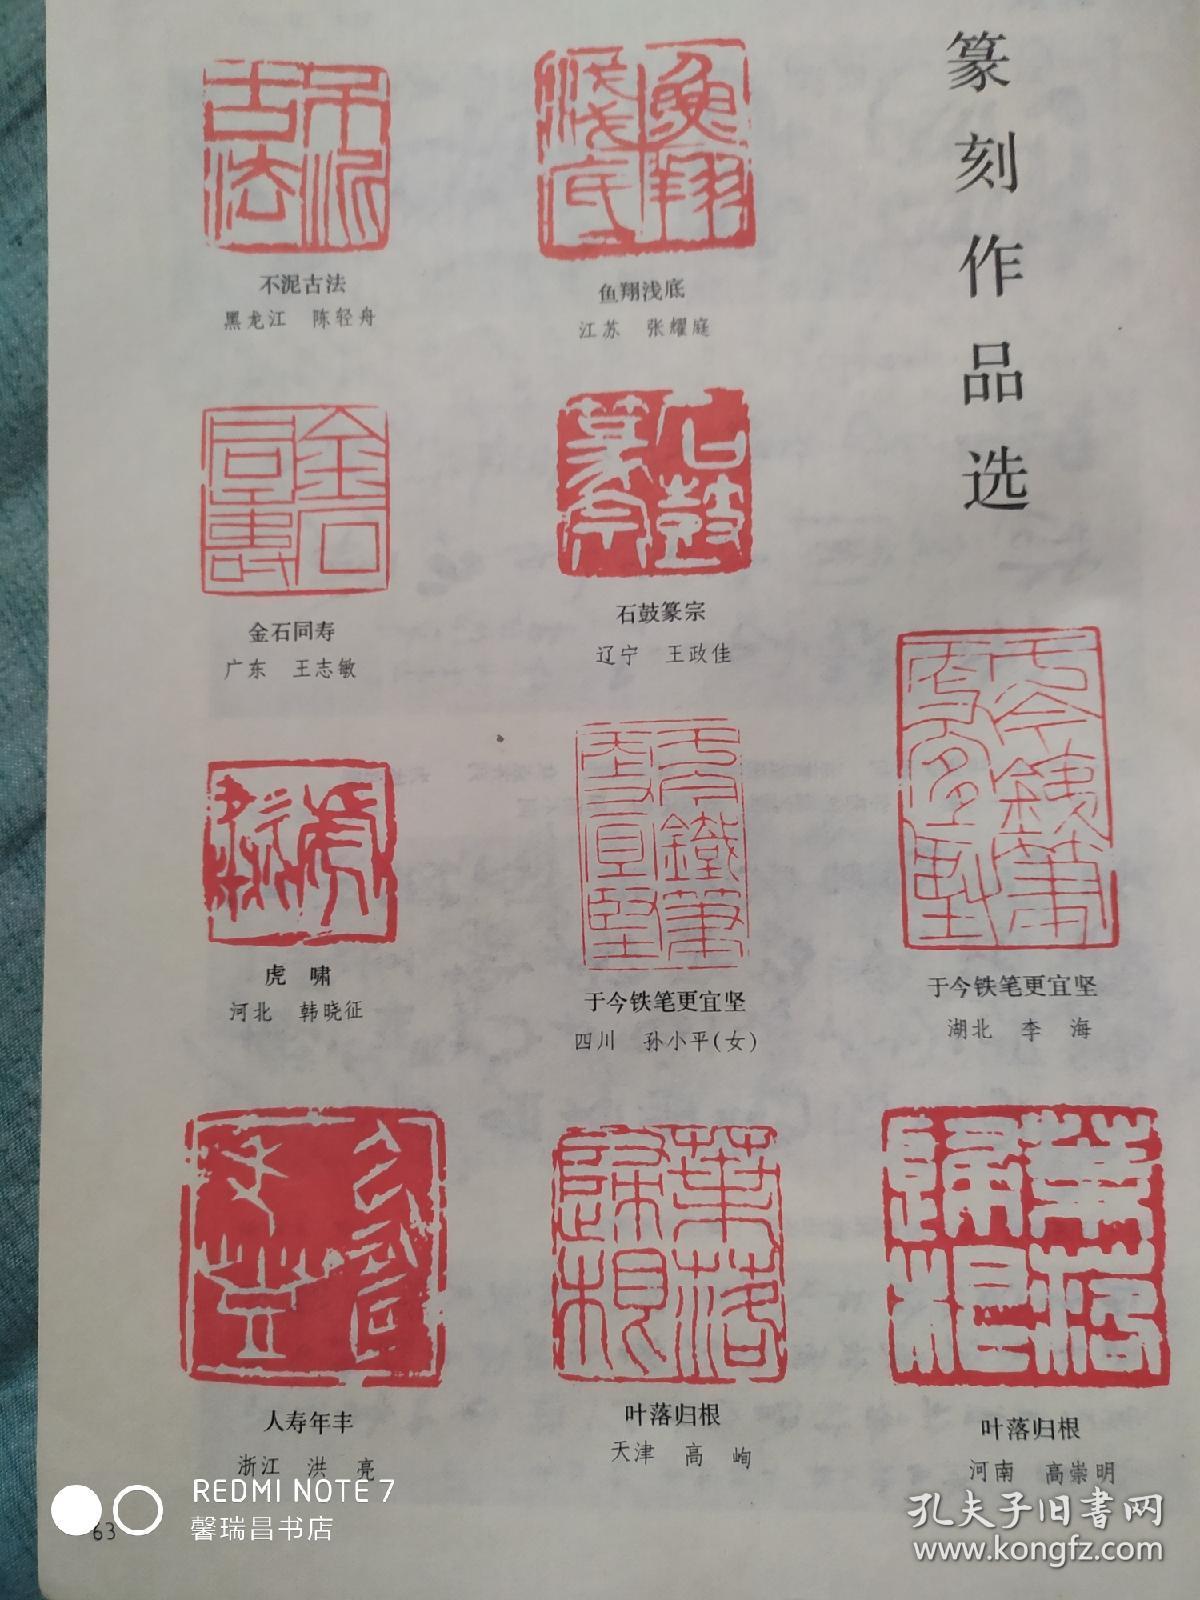 篆刻作品选
不泥古法
黑龙江 陈轻舟
鱼翔浅底
江苏 张耀庭
金石同寿
广东 王志敏
石鼓篆宗
辽宁 王政佳
虎 啸
河北 韩晓征
于今铁笔更宜坚
四川 孙小平(女)
于今铁笔更宜坚
湖北 李 海
人寿年丰
浙江 洪 亮
叶落归根
天津 高 峋
叶落归根
河南 高崇明
63
REDMI NOTE 7
馨瑞昌书店
孔夫子旧书网
www.kongfz.com